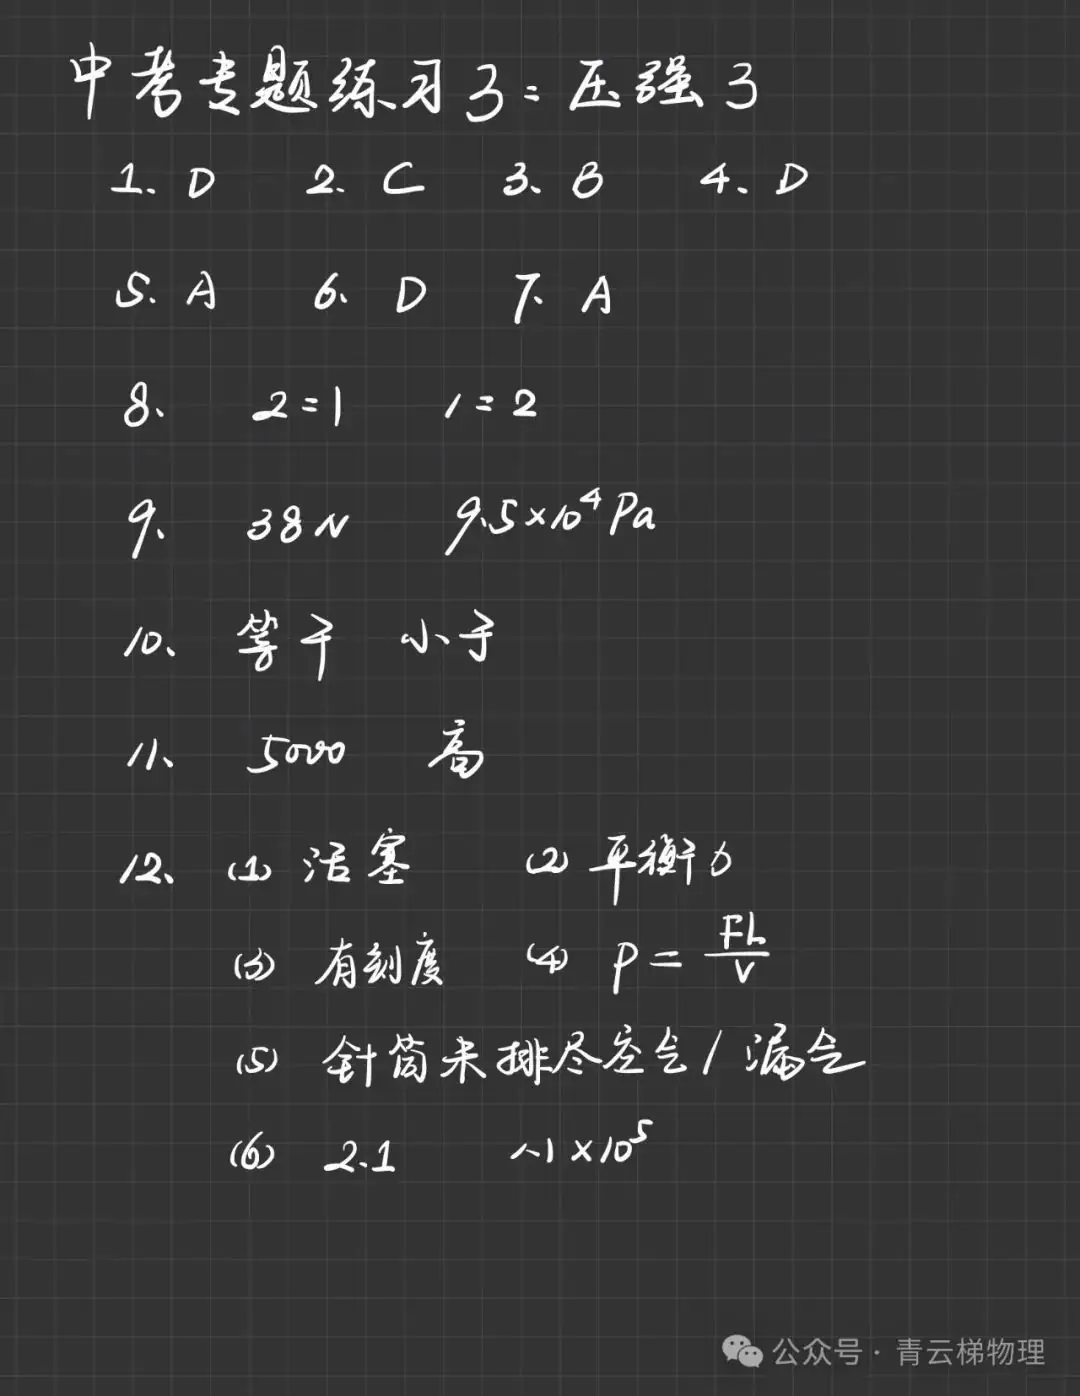 中考专题练习3：压强3
1、D 2、C 3、B 4、D
5、A 6、D 7、A
8、 2:1 1:2
9、 38N 9.5×10⁴Pa
10、 等于 小于
11、 5000 高
12、 (1) 活塞 (2) 平衡力
(3) 有刻度 (4) P = FL/V
(5) 针筒未排尽空气/漏气
(6) 2.1 1.1×10⁵
公众号·青云梯物理